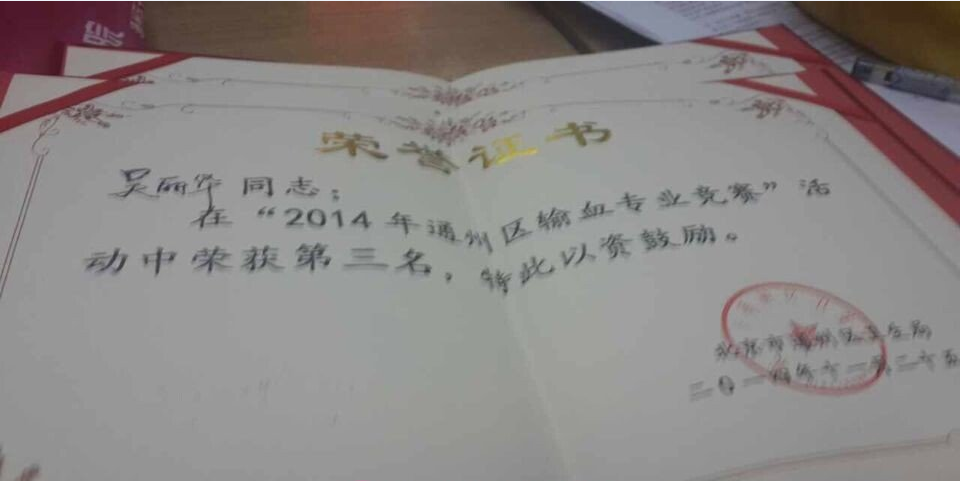 荣誉证书
吴丽华 同志：
在“2014年通州区输血专业竞赛”活
动中荣获第三名，特此以资鼓励。
北京市通州区卫生局
二〇一四年十一月二十五